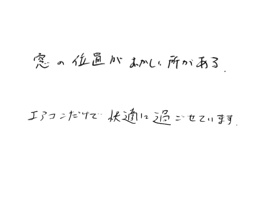 窓の位置がおかしい所がある.
エアコンだけで快適に過ごせています.